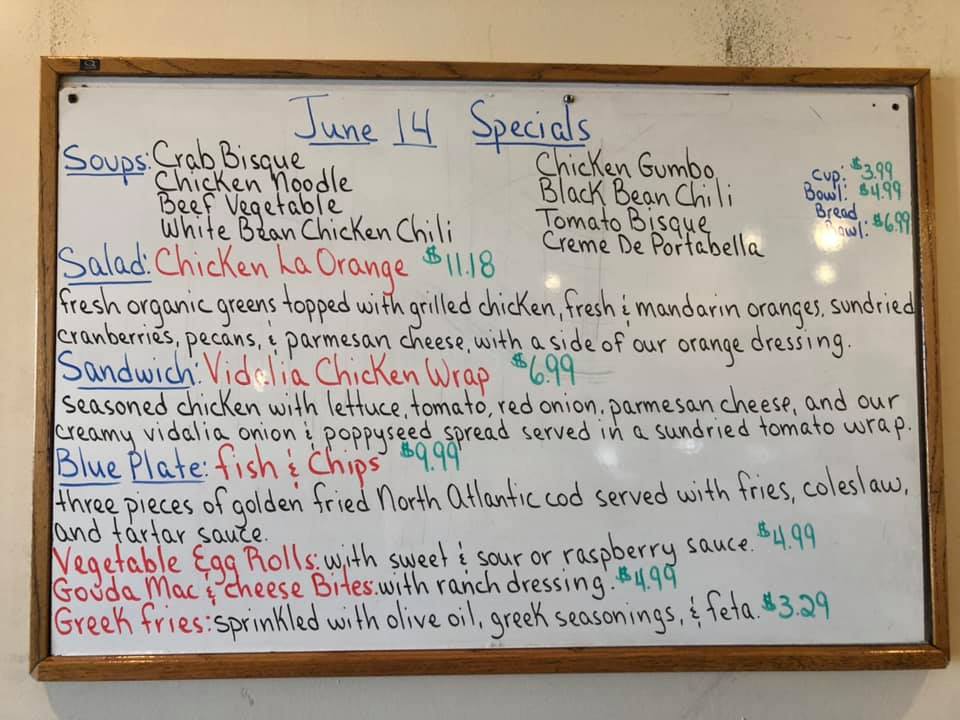 June 14 Specials
Soups: Crab Bisque
Chicken Noodle
Beef Vegetable
White Bean Chicken Chili
Chicken Gumbo
Black Bean Chili
Tomato Bisque
Creme De Portabella
Cup: $3.99
Bowl: $4.99
Bread
Bowl: $6.99
Salad: Chicken La Orange $11.18
fresh organic greens topped with grilled chicken, fresh & mandarin oranges, sundried
cranberries, pecans, & parmesan cheese, with a side of our orange dressing.
Sandwich: Vidalia Chicken Wrap $6.99
seasoned chicken with lettuce, tomato, red onion, parmesan cheese, and our
creamy vidalia onion & poppyseed spread served in a sundried tomato wrap.
Blue Plate: fish & Chips $9.99
three pieces of golden fried North Atlantic cod served with fries, coleslaw,
and tartar sauce.
Vegetable Egg Rolls: with sweet & sour or raspberry sauce. $4.99
Gouda Mac & cheese Bites: with ranch dressing. $4.99
Greek fries: sprinkled with olive oil, greek seasonings, & feta. $3.29